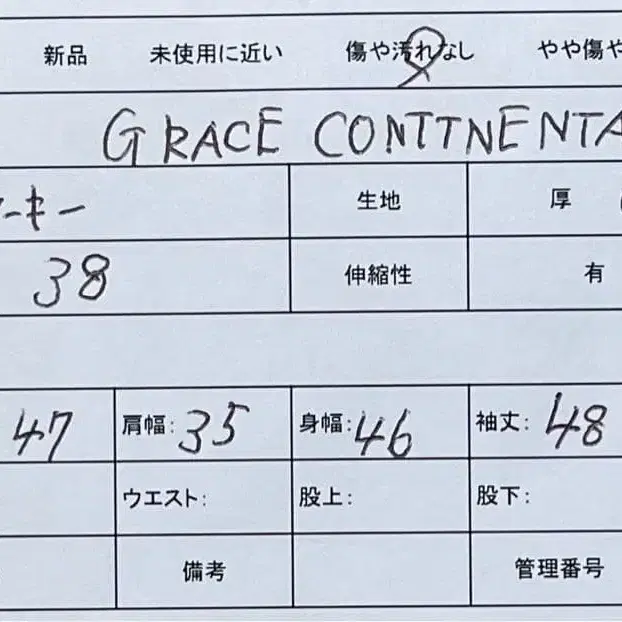 新品 未使用に近い 傷や汚れなし やや傷や
GRACE CONTTNENTA
ーキー 生地 厚
38 伸縮性 有
47 肩幅: 35 身幅: 46 袖丈: 48
ウエスト: 股上: 股下:
備考 管理番号